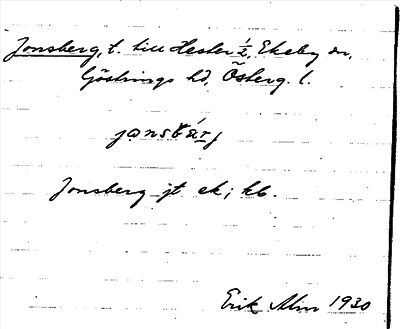 Jonsberg, t. till Hester ½, Ekeby sn,
Göstrings hd, Österg. l.
jonsbärj
Jonsberg jt ek; kb.
Erik Alm 1930